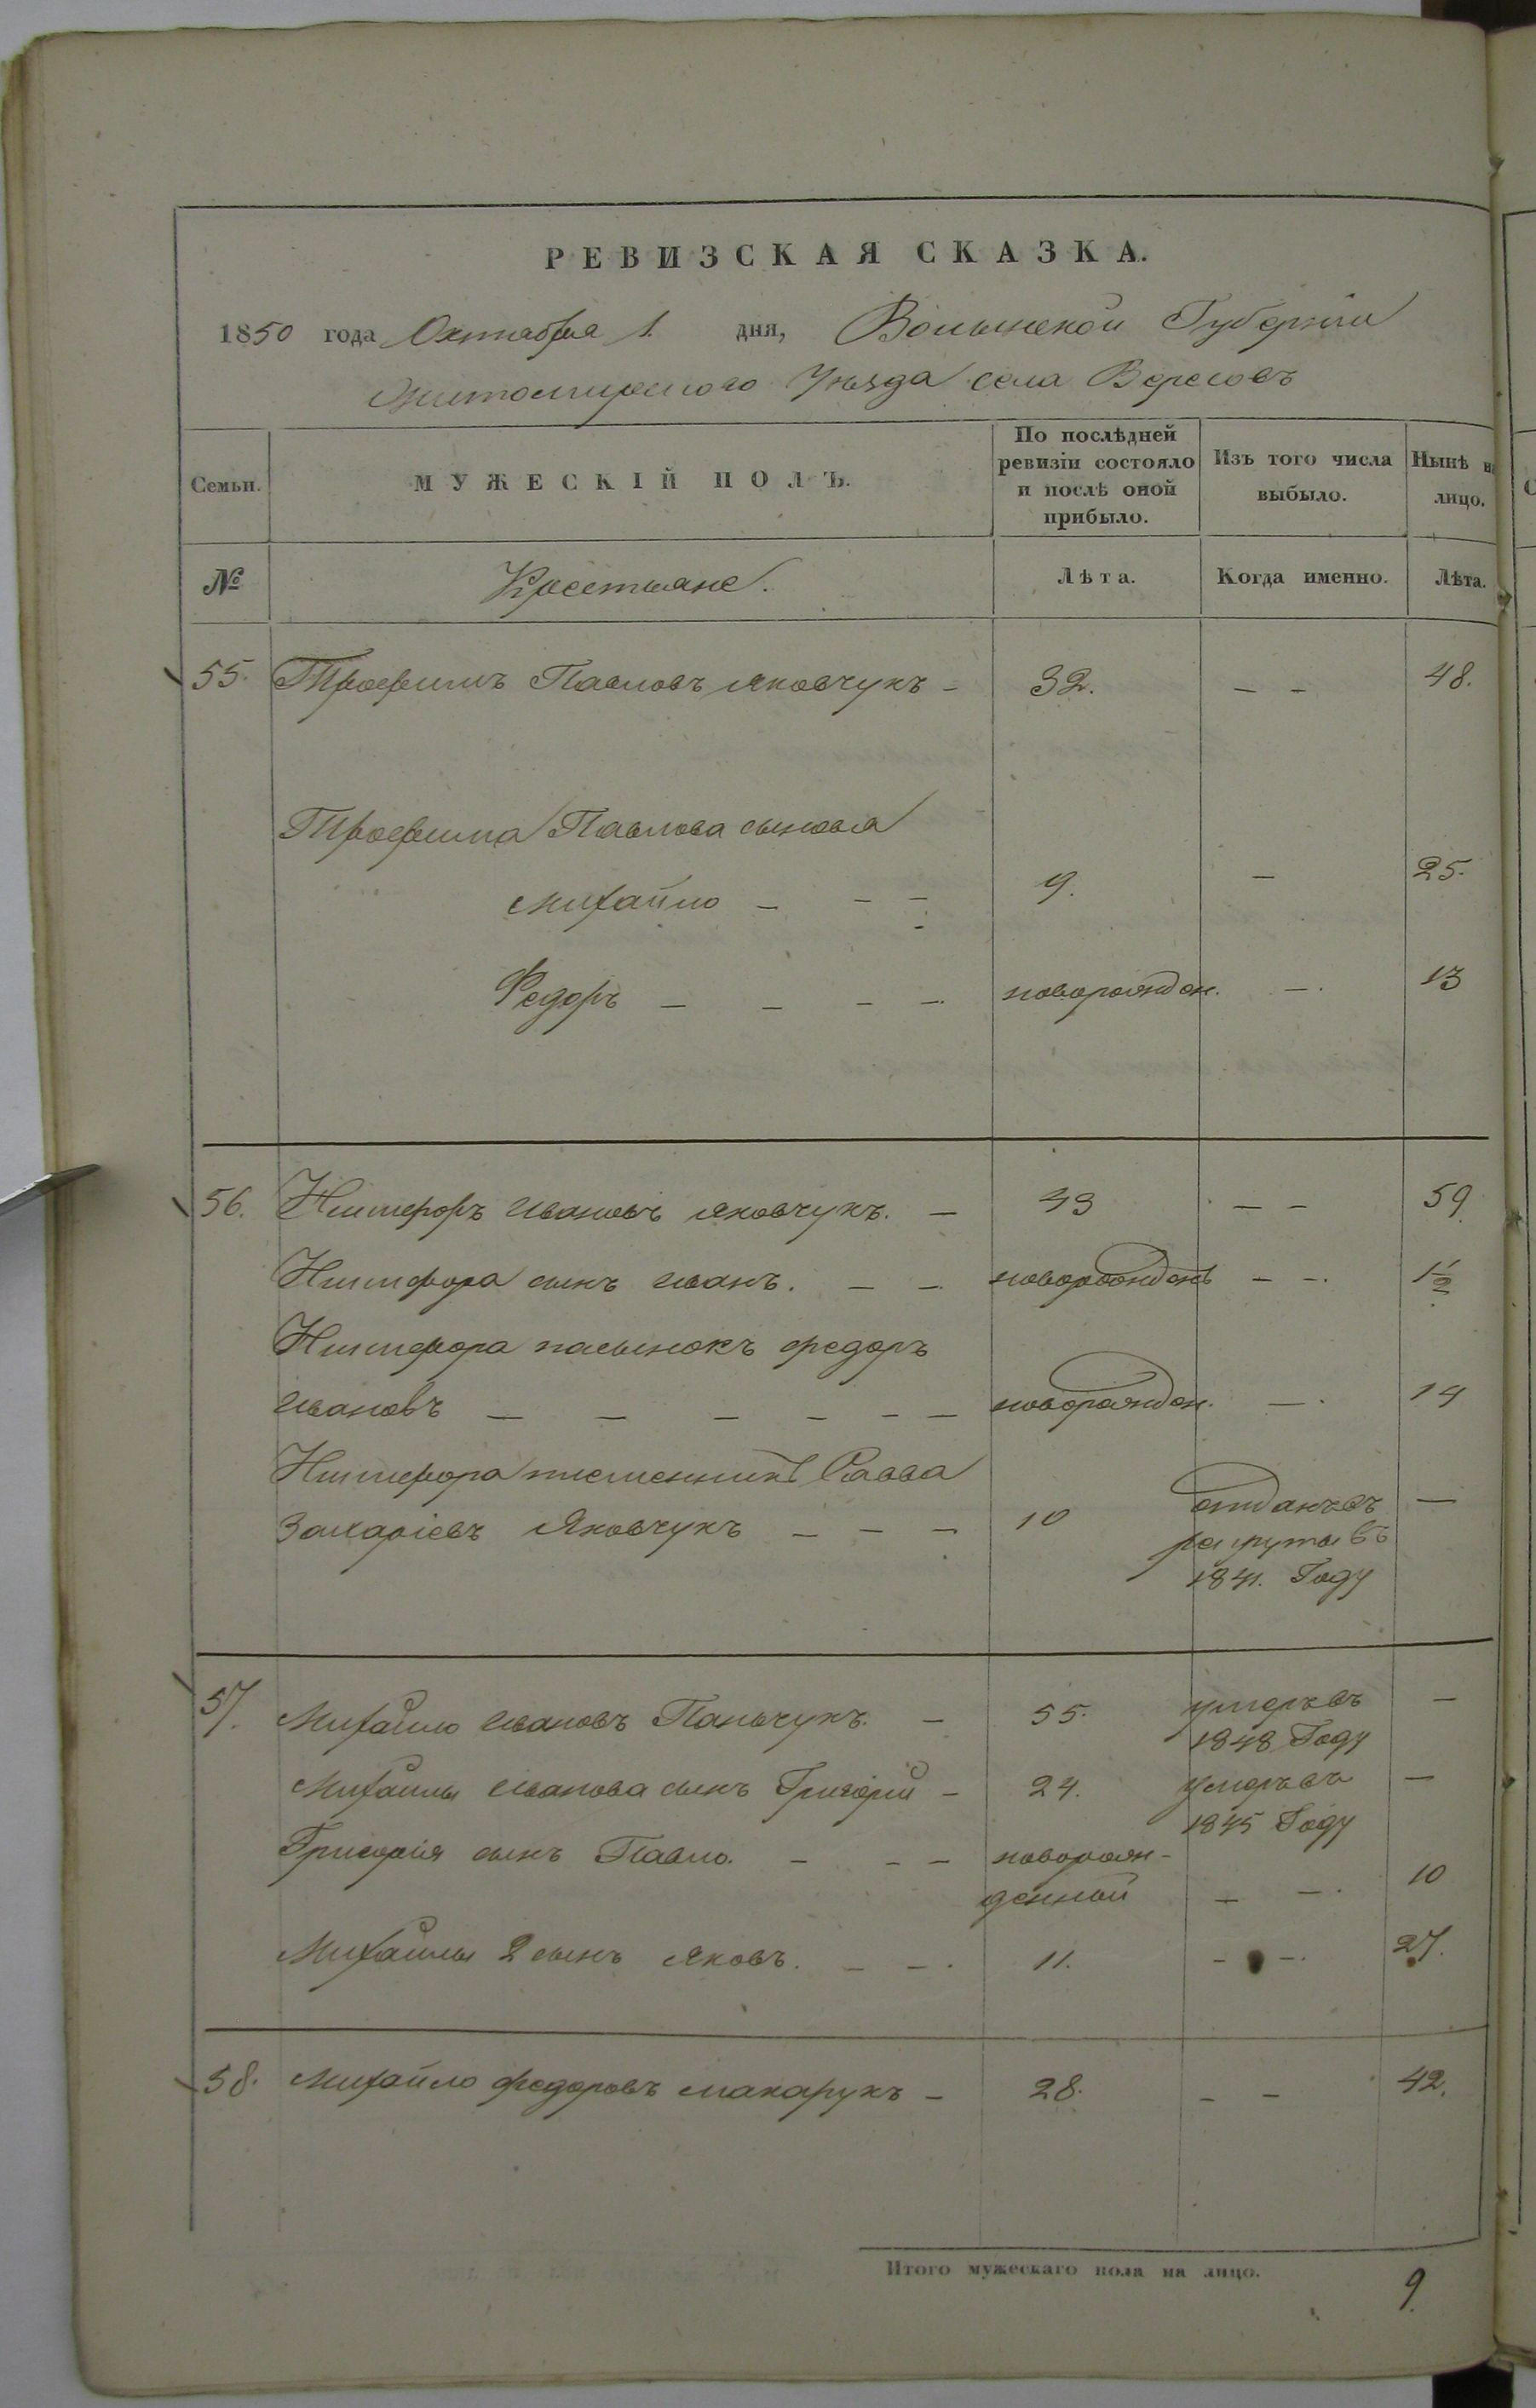 РЕВИЗСКАЯ СКАЗКА.
1850 года Октября 1. дня, Волынской Губернии
Житомирского Уезда села Вересовъ
Семьи. МУЖЕСКІЙ ПОЛЪ. По послѣдней ревизіи состояло и послѣ оной прибыло. Изъ того числа выбыло. Нынѣ на лицо.
№ Крестьяне. Лѣта. Когда именно. Лѣта.
55. Трофимъ Павловъ Яковчукъ - 32. - - 48.
Трофима Павлова сыновья
Михайло - - - 9. - 25.
Федоръ - - - - новорожден. - . 13
56. Никифоръ Ивановъ Яковчукъ. - 43 - - 59.
Никифора сынъ Иванъ. - - новорожденъ - - . 1½
Никифора пасынокъ Федоръ
Ивановъ - - - - - - новорожден. - . 14
Никифора племенникъ Савва
Захаріевъ Яковчукъ - - - 10 отданъ въ -
рекруты въ
1841. Году
57. Михайло Ивановъ Паньчукъ. - 55. умеръ въ -
1848 Году
Михайлы Иванова сынъ Григорій - 24. умеръ въ -
1845 Году
Григорія сынъ Павло. - - - новорож-
денный - - . 10
Михайлы 2 сынъ Яковъ. - - . 11. - - . 27.
58. Михайло Федоровъ Макарукъ - 28. - - 42.
Итого мужескаго пола на лицо. 9.